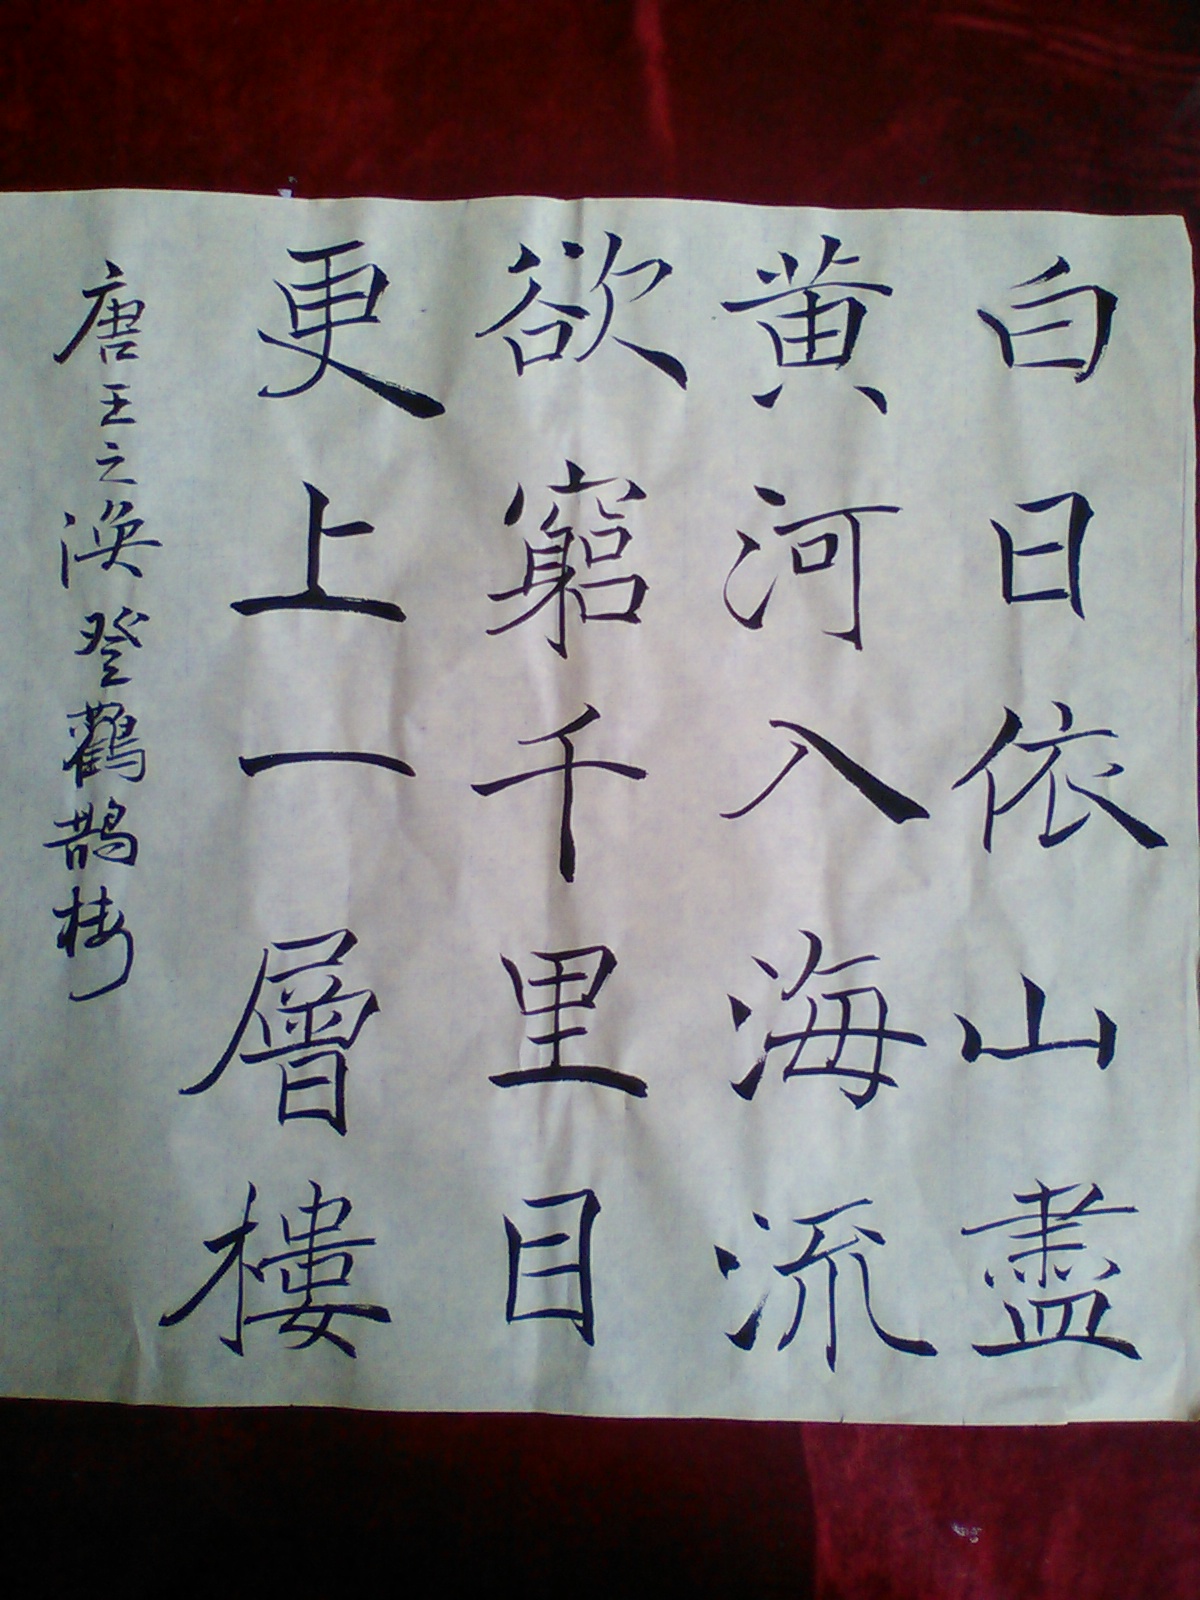 白日依山盡
黄河入海流
欲窮千里目
更上一層樓
唐王之渙登鸛鵲楼